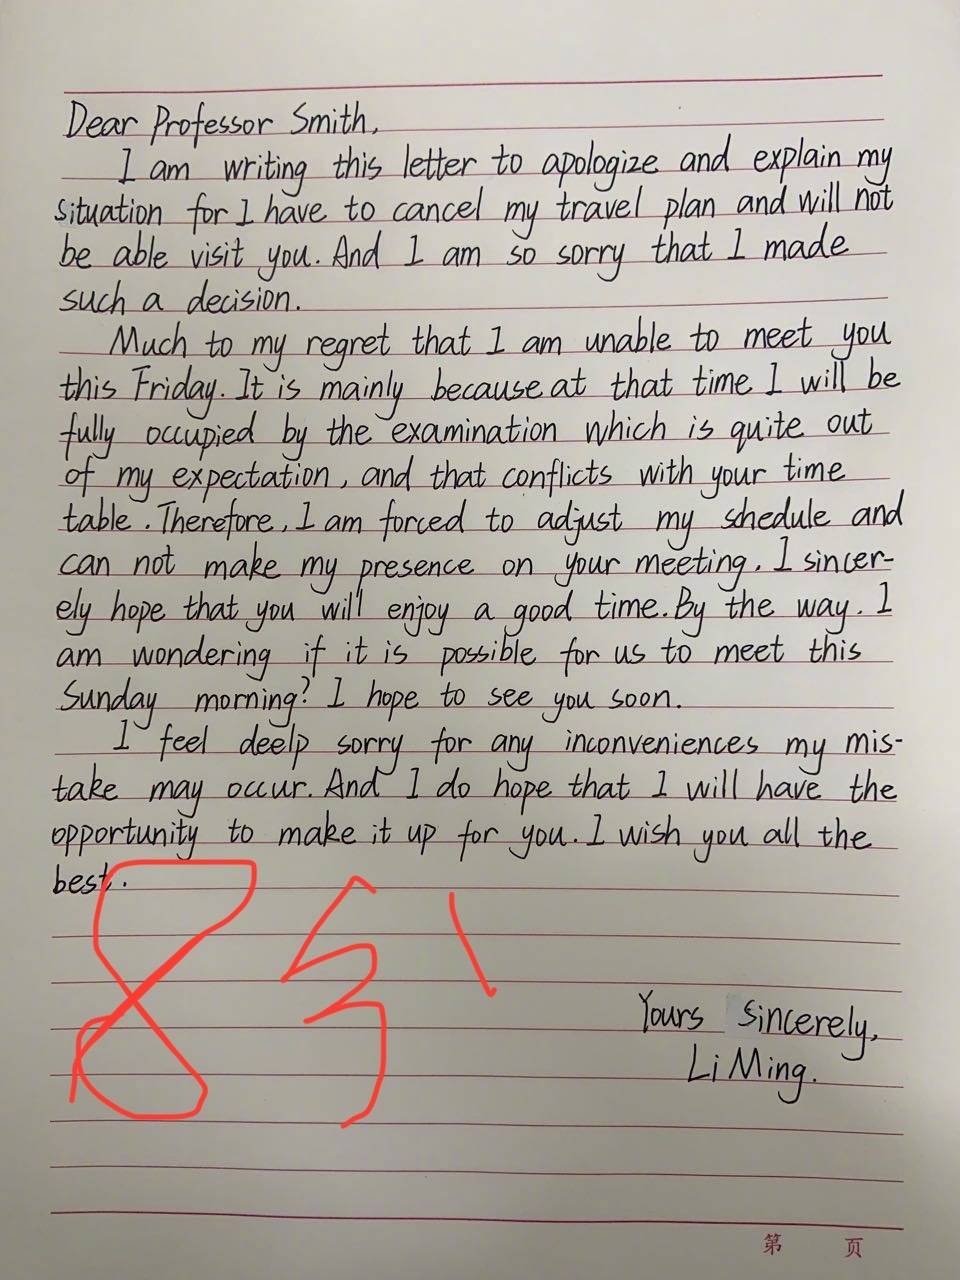 Dear Professor Smith,
I am writing this letter to apologize and explain my
situation for I have to cancel my travel plan and will not
be able visit you. And I am so sorry that I made
such a decision.
Much to my regret that I am unable to meet you
this Friday. It is mainly because at that time I will be
fully occupied by the examination which is quite out
of my expectation, and that conflicts with your time
table. Therefore, I am forced to adjust my schedule and
can not make my presence on your meeting. I sincer-
ely hope that you will enjoy a good time. By the way. I
am wondering if it is possible for us to meet this
Sunday morning? I hope to see you soon.
I feel deelp sorry for any inconveniences my mis-
take may occur. And I do hope that I will have the
opportunity to make it up for you. I wish you all the
best.
Yours sincerely,
Li Ming.
第 页